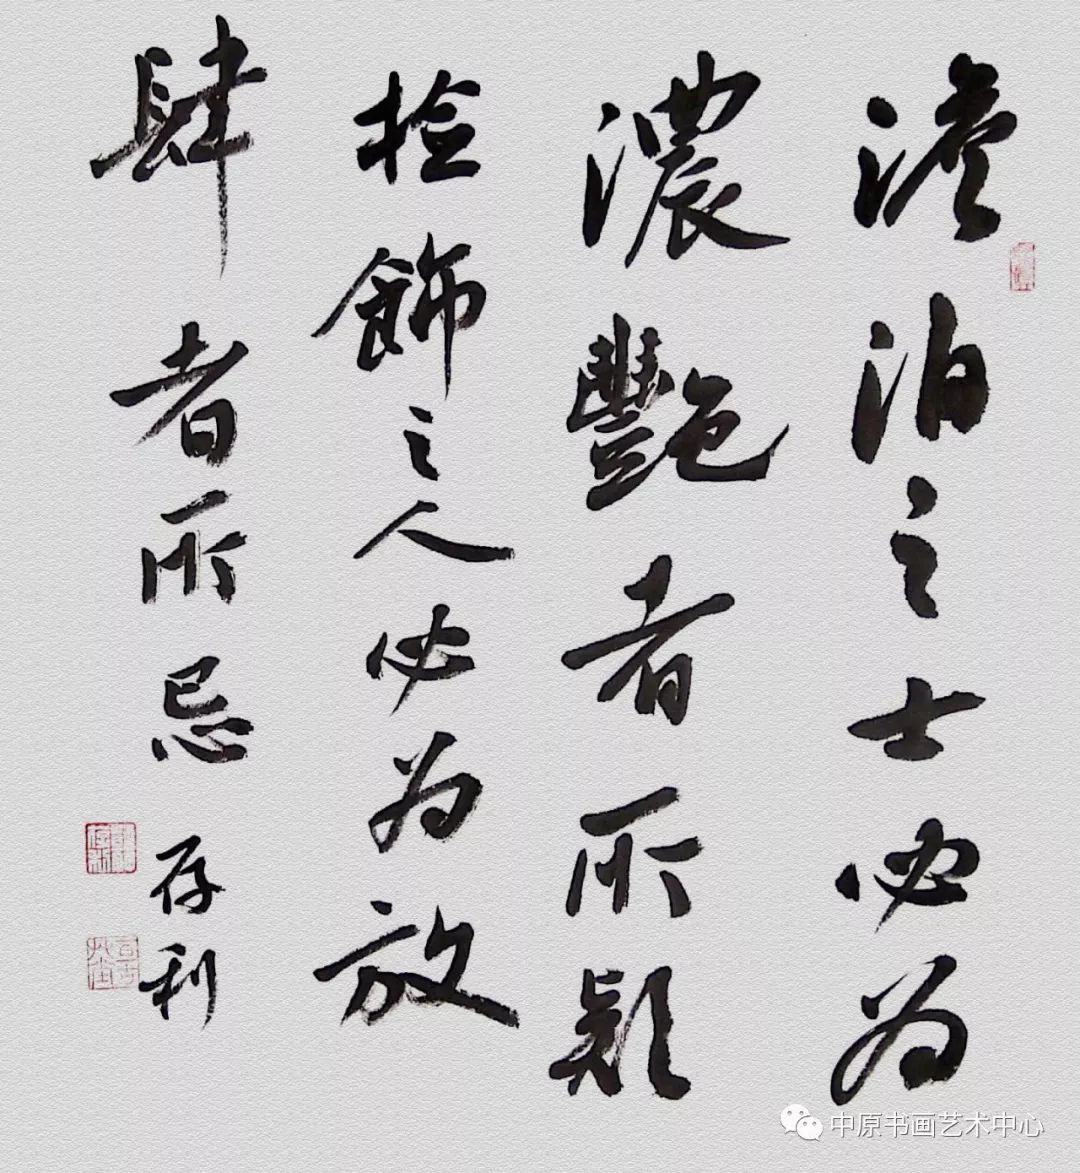 澹泊之士必为
濃艷者所疑
捡飾之人必为放
肆者所忌
存利
中原书画艺术中心